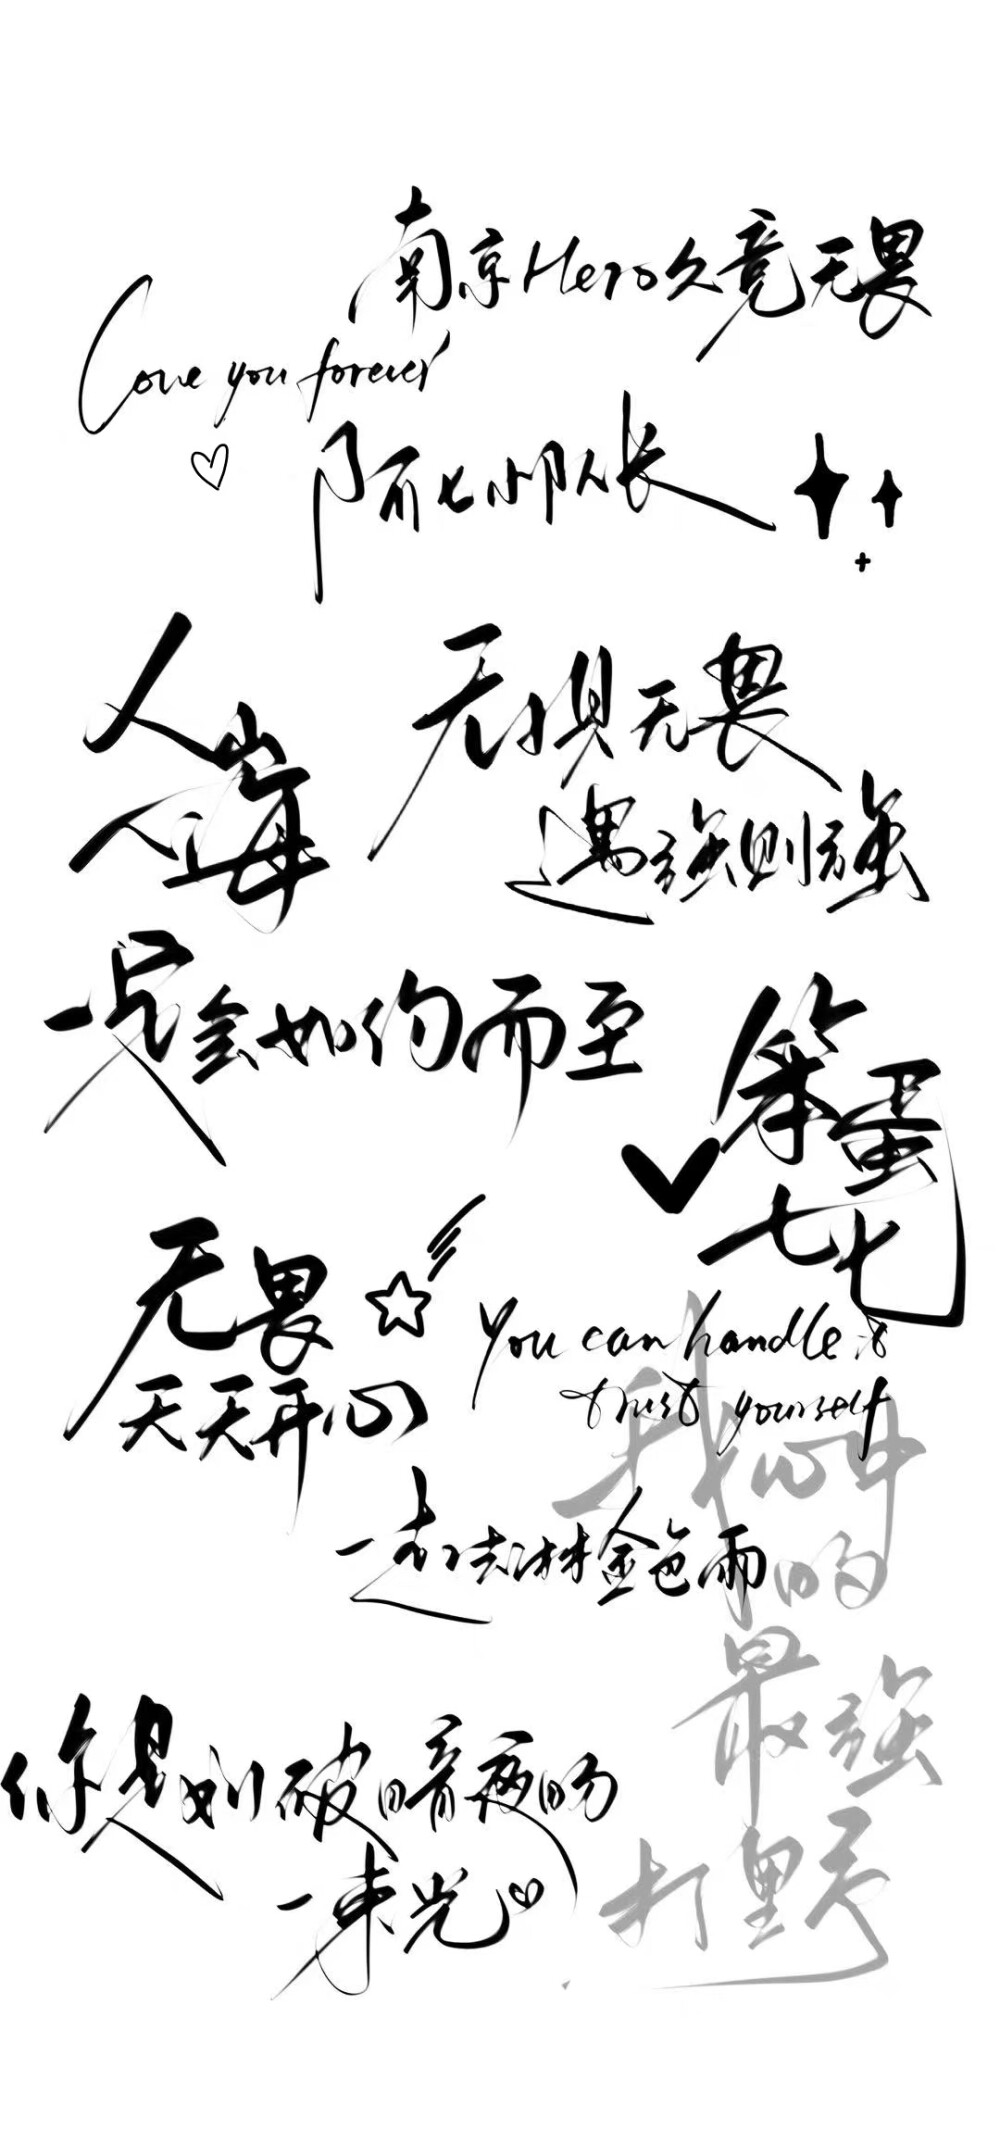 南京Hero久竞无畏
Love you forever
陌七小队长
人山
人海
无惧无畏
遇强则强
一定会如约而至
笨蛋
七七
无畏
天天开心
You can handle it
trust yourself
我心中
的
一起去淋金色雨
最强
打野
你是划破暗夜的
一束光